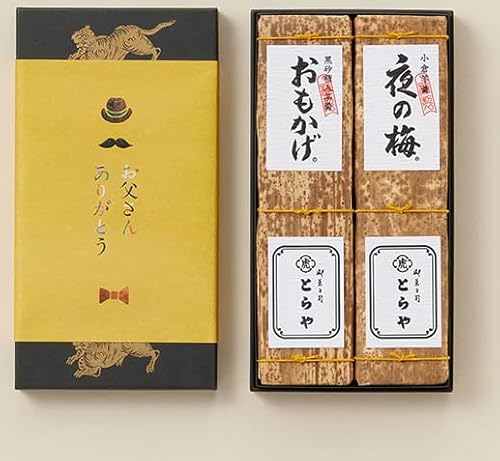 お父さん
ありがとう
黒砂糖入羊羹
おもかげ。
小倉羊羹
夜の梅。
虎
御菓子司
とらや
虎
御菓子司
とらや